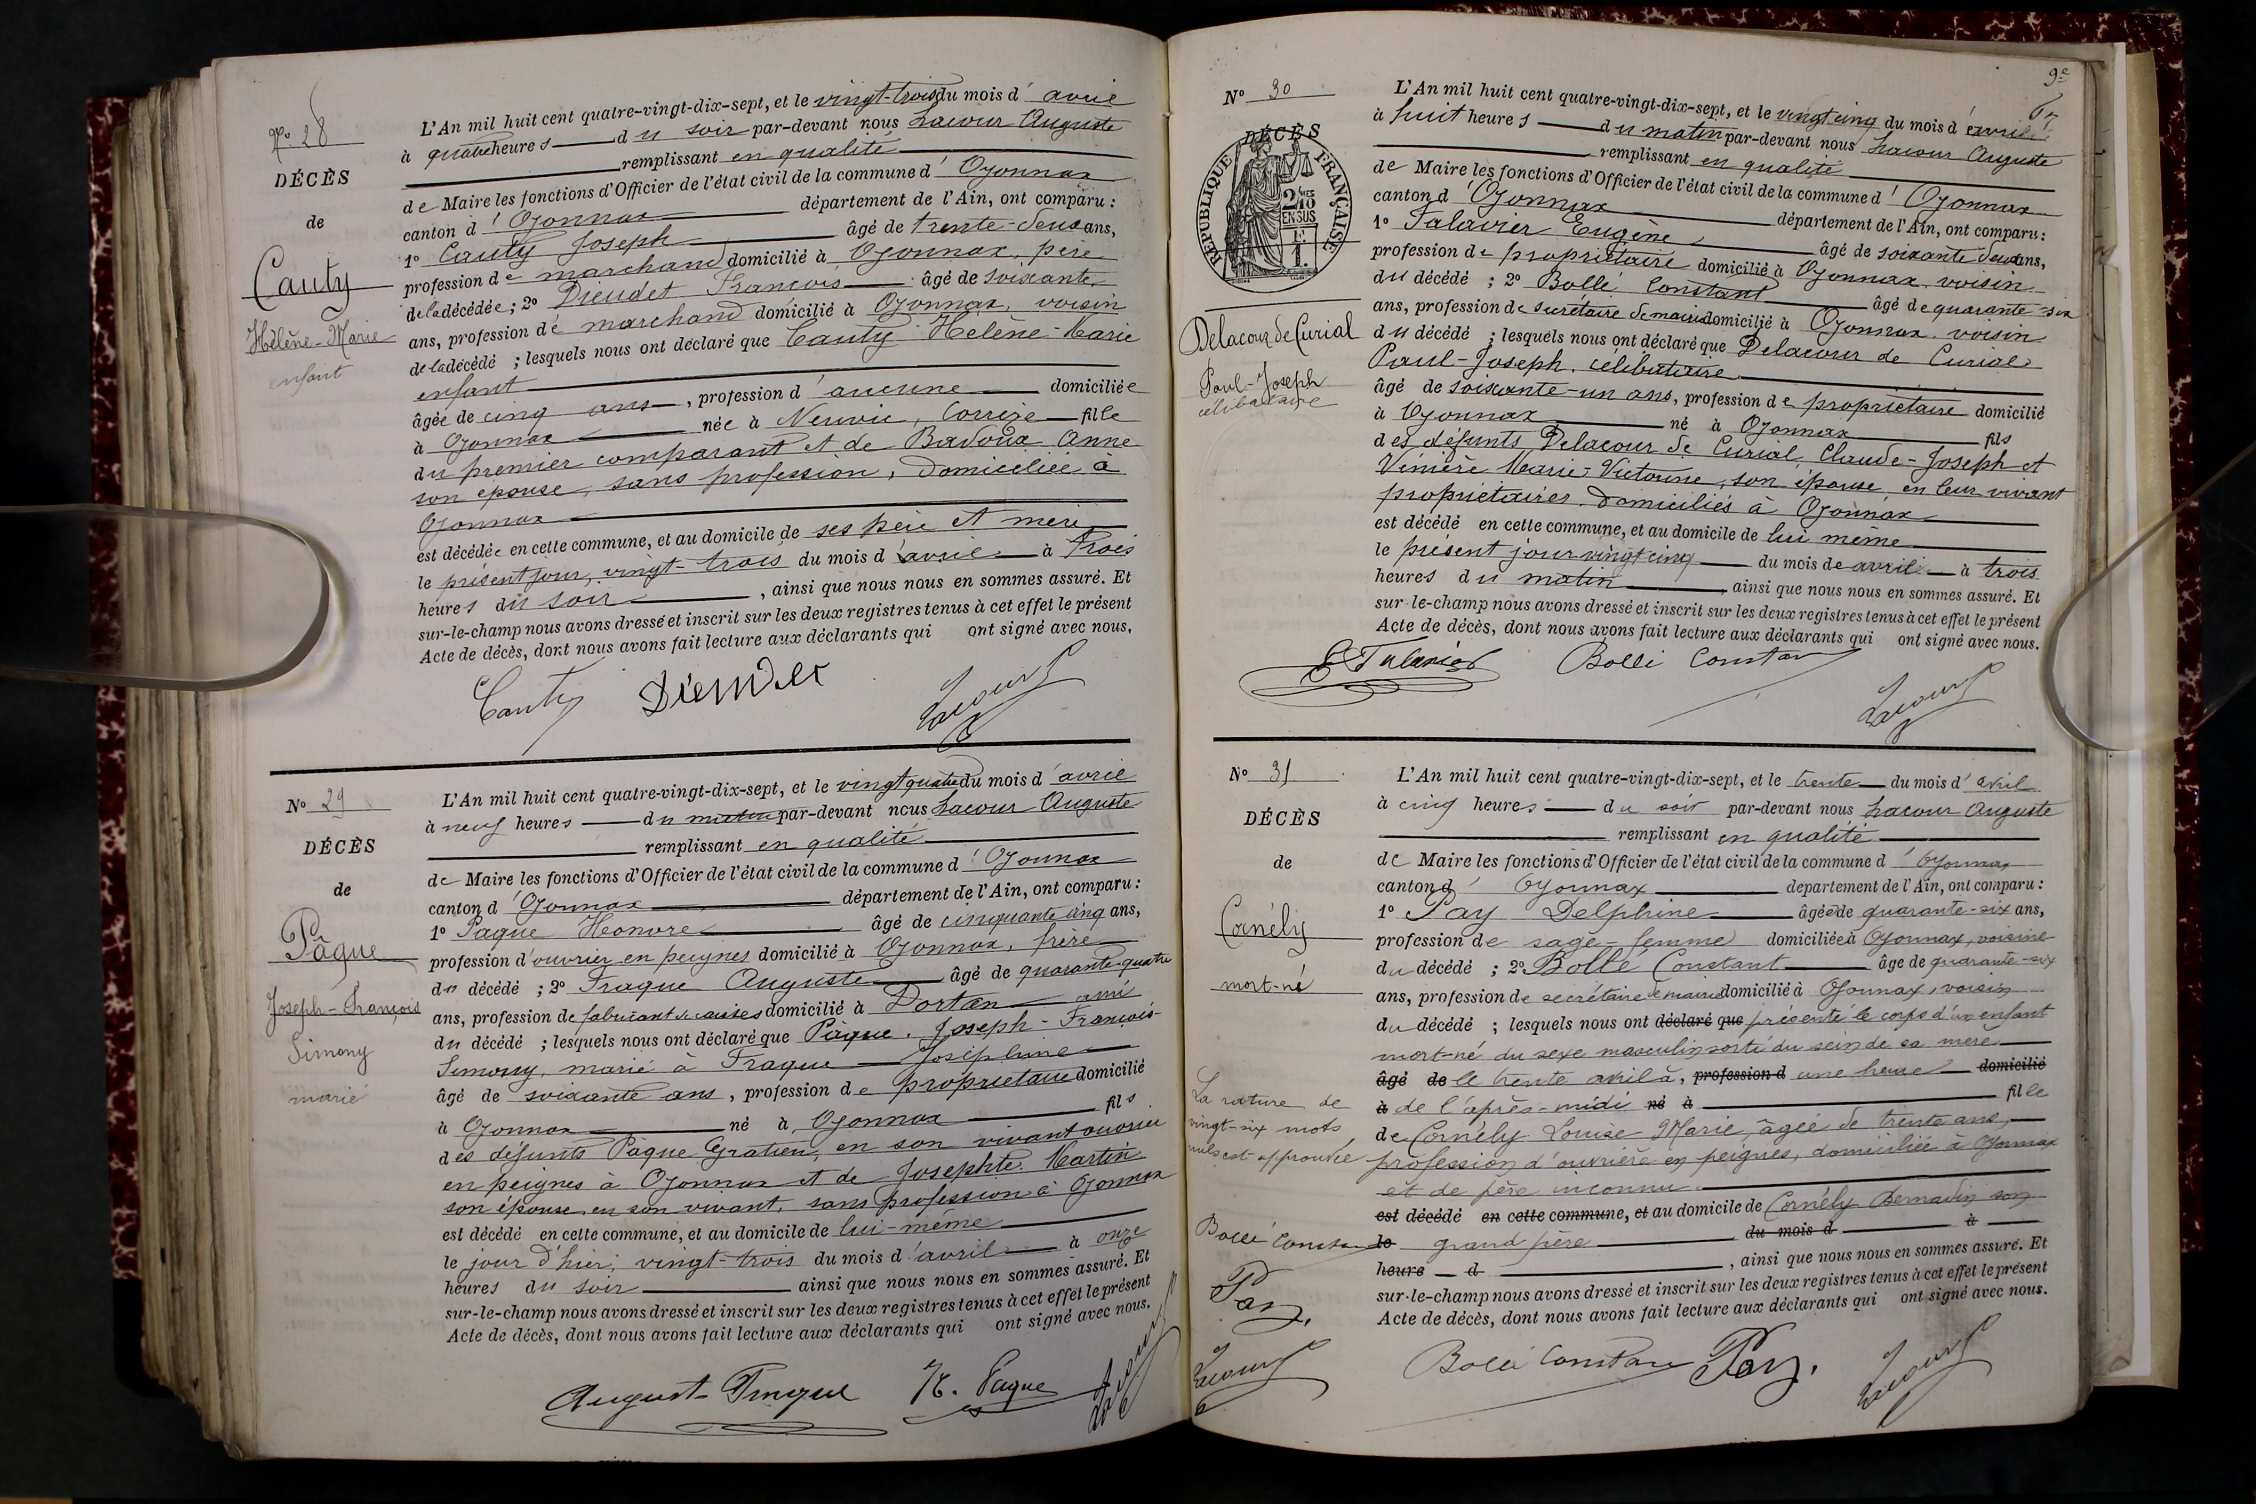 No 28
DÉCÈS
de
Cauty
Hélène-Marie
enfant
L'An mil huit cent quatre-vingt-dix-sept, et le vingt-trois du mois d'avril
à quatre heures du soir par-devant nous Lacour Auguste
remplissant en qualité
de Maire les fonctions d'Officier de l'état civil de la commune d'Oyonnax
canton d'Oyonnax département de l'Ain, ont comparu :
1o Cauty Joseph âgé de trente-deux ans,
profession de marchand domicilié à Oyonnax, père
de la décédée ; 2o Dieudet François âgé de soixante
ans, profession de marchand domicilié à Oyonnax, voisin
de la décédé ; lesquels nous ont déclaré que Cauty Hélène-Marie
enfant
âgée de cinq ans, profession d'aucune domiciliée
à Oyonnax née à Neuvic, Corrèze fille
du premier comparant et de Anne
son épouse, sans profession, domiciliée à
Oyonnax
est décédée en cette commune, et au domicile de ses père et mère
le présent jour, vingt-trois du mois d'avril à trois
heures du soir, ainsi que nous nous en sommes assuré. Et
sur-le-champ nous avons dressé et inscrit sur les deux registres tenus à cet effet le présent
Acte de décès, dont nous avons fait lecture aux déclarants qui ont signé avec nous.
Cauty Dieudet Lacour
No 29
DÉCÈS
de
Pâque
Joseph-François
Simony
marié
L'An mil huit cent quatre-vingt-dix-sept, et le vingt quatre du mois d'avril
à neuf heures du matin par-devant nous Lacour Auguste
remplissant en qualité
de Maire les fonctions d'Officier de l'état civil de la commune d'Oyonnax
canton d'Oyonnax département de l'Ain, ont comparu :
1o Pâque Honoré âgé de cinquante cinq ans,
profession d'ouvrier en peignes domicilié à Oyonnax, frère
du décédé ; 2o Fraque Auguste âgé de quarante-quatre
ans, profession de fabricant de caisses domicilié à Dortan ami
du décédé ; lesquels nous ont déclaré que Pâque, Joseph-François-
Simony, marié à Fraque Joséphine
âgé de soixante ans, profession de propriétaire domicilié
à Oyonnax né à Oyonnax fils
des défunts Pâque Gratien, en son vivant ouvrier
en peignes à Oyonnax et de Josephte Martin
son épouse en son vivant, sans profession à Oyonnax
est décédé en cette commune, et au domicile de lui-même
le jour d'hier, vingt-trois du mois d'avril à onze
heures du soir ainsi que nous nous en sommes assuré. Et
sur-le-champ nous avons dressé et inscrit sur les deux registres tenus à cet effet le présent
Acte de décès, dont nous avons fait lecture aux déclarants qui ont signé avec nous.
August Fraque H. Paque Lacour
9e
No 30
DÉCÈS
RÉPUBLIQUE FRANÇAISE
Delacour de Curial
Paul-Joseph
célibataire
L'An mil huit cent quatre-vingt-dix-sept, et le vingt cinq du mois d'avril
à huit heures du matin par-devant nous Lacour Auguste
remplissant en qualité
de Maire les fonctions d'Officier de l'état civil de la commune d'Oyonnax
canton d'Oyonnax département de l'Ain, ont comparu :
1o Talavier Eugène âgé de soixante deux ans,
profession de propriétaire domicilié à Oyonnax, voisin
du décédé ; 2o Bollé Constant âgé de quarante-six
ans, profession de secrétaire de mairie domicilié à Oyonnax, voisin
du décédé ; lesquels nous ont déclaré que Delacour de Curial
Paul-Joseph, célibataire
âgé de soixante-un ans, profession de propriétaire domicilié
à Oyonnax né à Oyonnax fils
des défunts Delacour de Curial, Claude-Joseph et
Vinière Marie-Victorine, son épouse, en leur vivant
propriétaires domiciliés à Oyonnax
est décédé en cette commune, et au domicile de lui même
le présent jour vingt cinq du mois de avril à trois
heures du matin, ainsi que nous nous en sommes assuré. Et
sur-le-champ nous avons dressé et inscrit sur les deux registres tenus à cet effet le présent
Acte de décès, dont nous avons fait lecture aux déclarants qui ont signé avec nous.
E Talavier Bollé Constant Lacour
No 31
DÉCÈS
de
Cornély
mort-né
La rature de
vingt-six mots
nuls est approuvée
Bollé Constant
Pay.
Lacour
L'An mil huit cent quatre-vingt-dix-sept, et le trente du mois d'avril
à cinq heures du soir par-devant nous Lacour Auguste
remplissant en qualité
de Maire les fonctions d'Officier de l'état civil de la commune d'Oyonnax
canton d'Oyonnax département de l'Ain, ont comparu :
1o Pay Delphine âgée de quarante-six ans,
profession de sage-femme domiciliée à Oyonnax, voisine
du décédé ; 2o Bollé Constant âgé de quarante-six
ans, profession de secrétaire de mairie domicilié à Oyonnax, voisin
du décédé ; lesquels nous ont déclaré que présenté le corps d'un enfant
mort-né du sexe masculin sorti du sein de sa mère
âgé de le trente avril à, profession d une heure domicilié
à de l'après-midi né à fille
de Cornély Louise Marie, âgée de trente ans,
profession d'ouvrière en peignes, domiciliée à Oyonnax
et de père inconnu.
est décédé en cette commune, et au domicile de Cornély Bernardin son
le grand père du mois d à
heure d, ainsi que nous nous en sommes assuré. Et
sur-le-champ nous avons dressé et inscrit sur les deux registres tenus à cet effet le présent
Acte de décès, dont nous avons fait lecture aux déclarants qui ont signé avec nous.
Bollé Constant Pay. Lacour